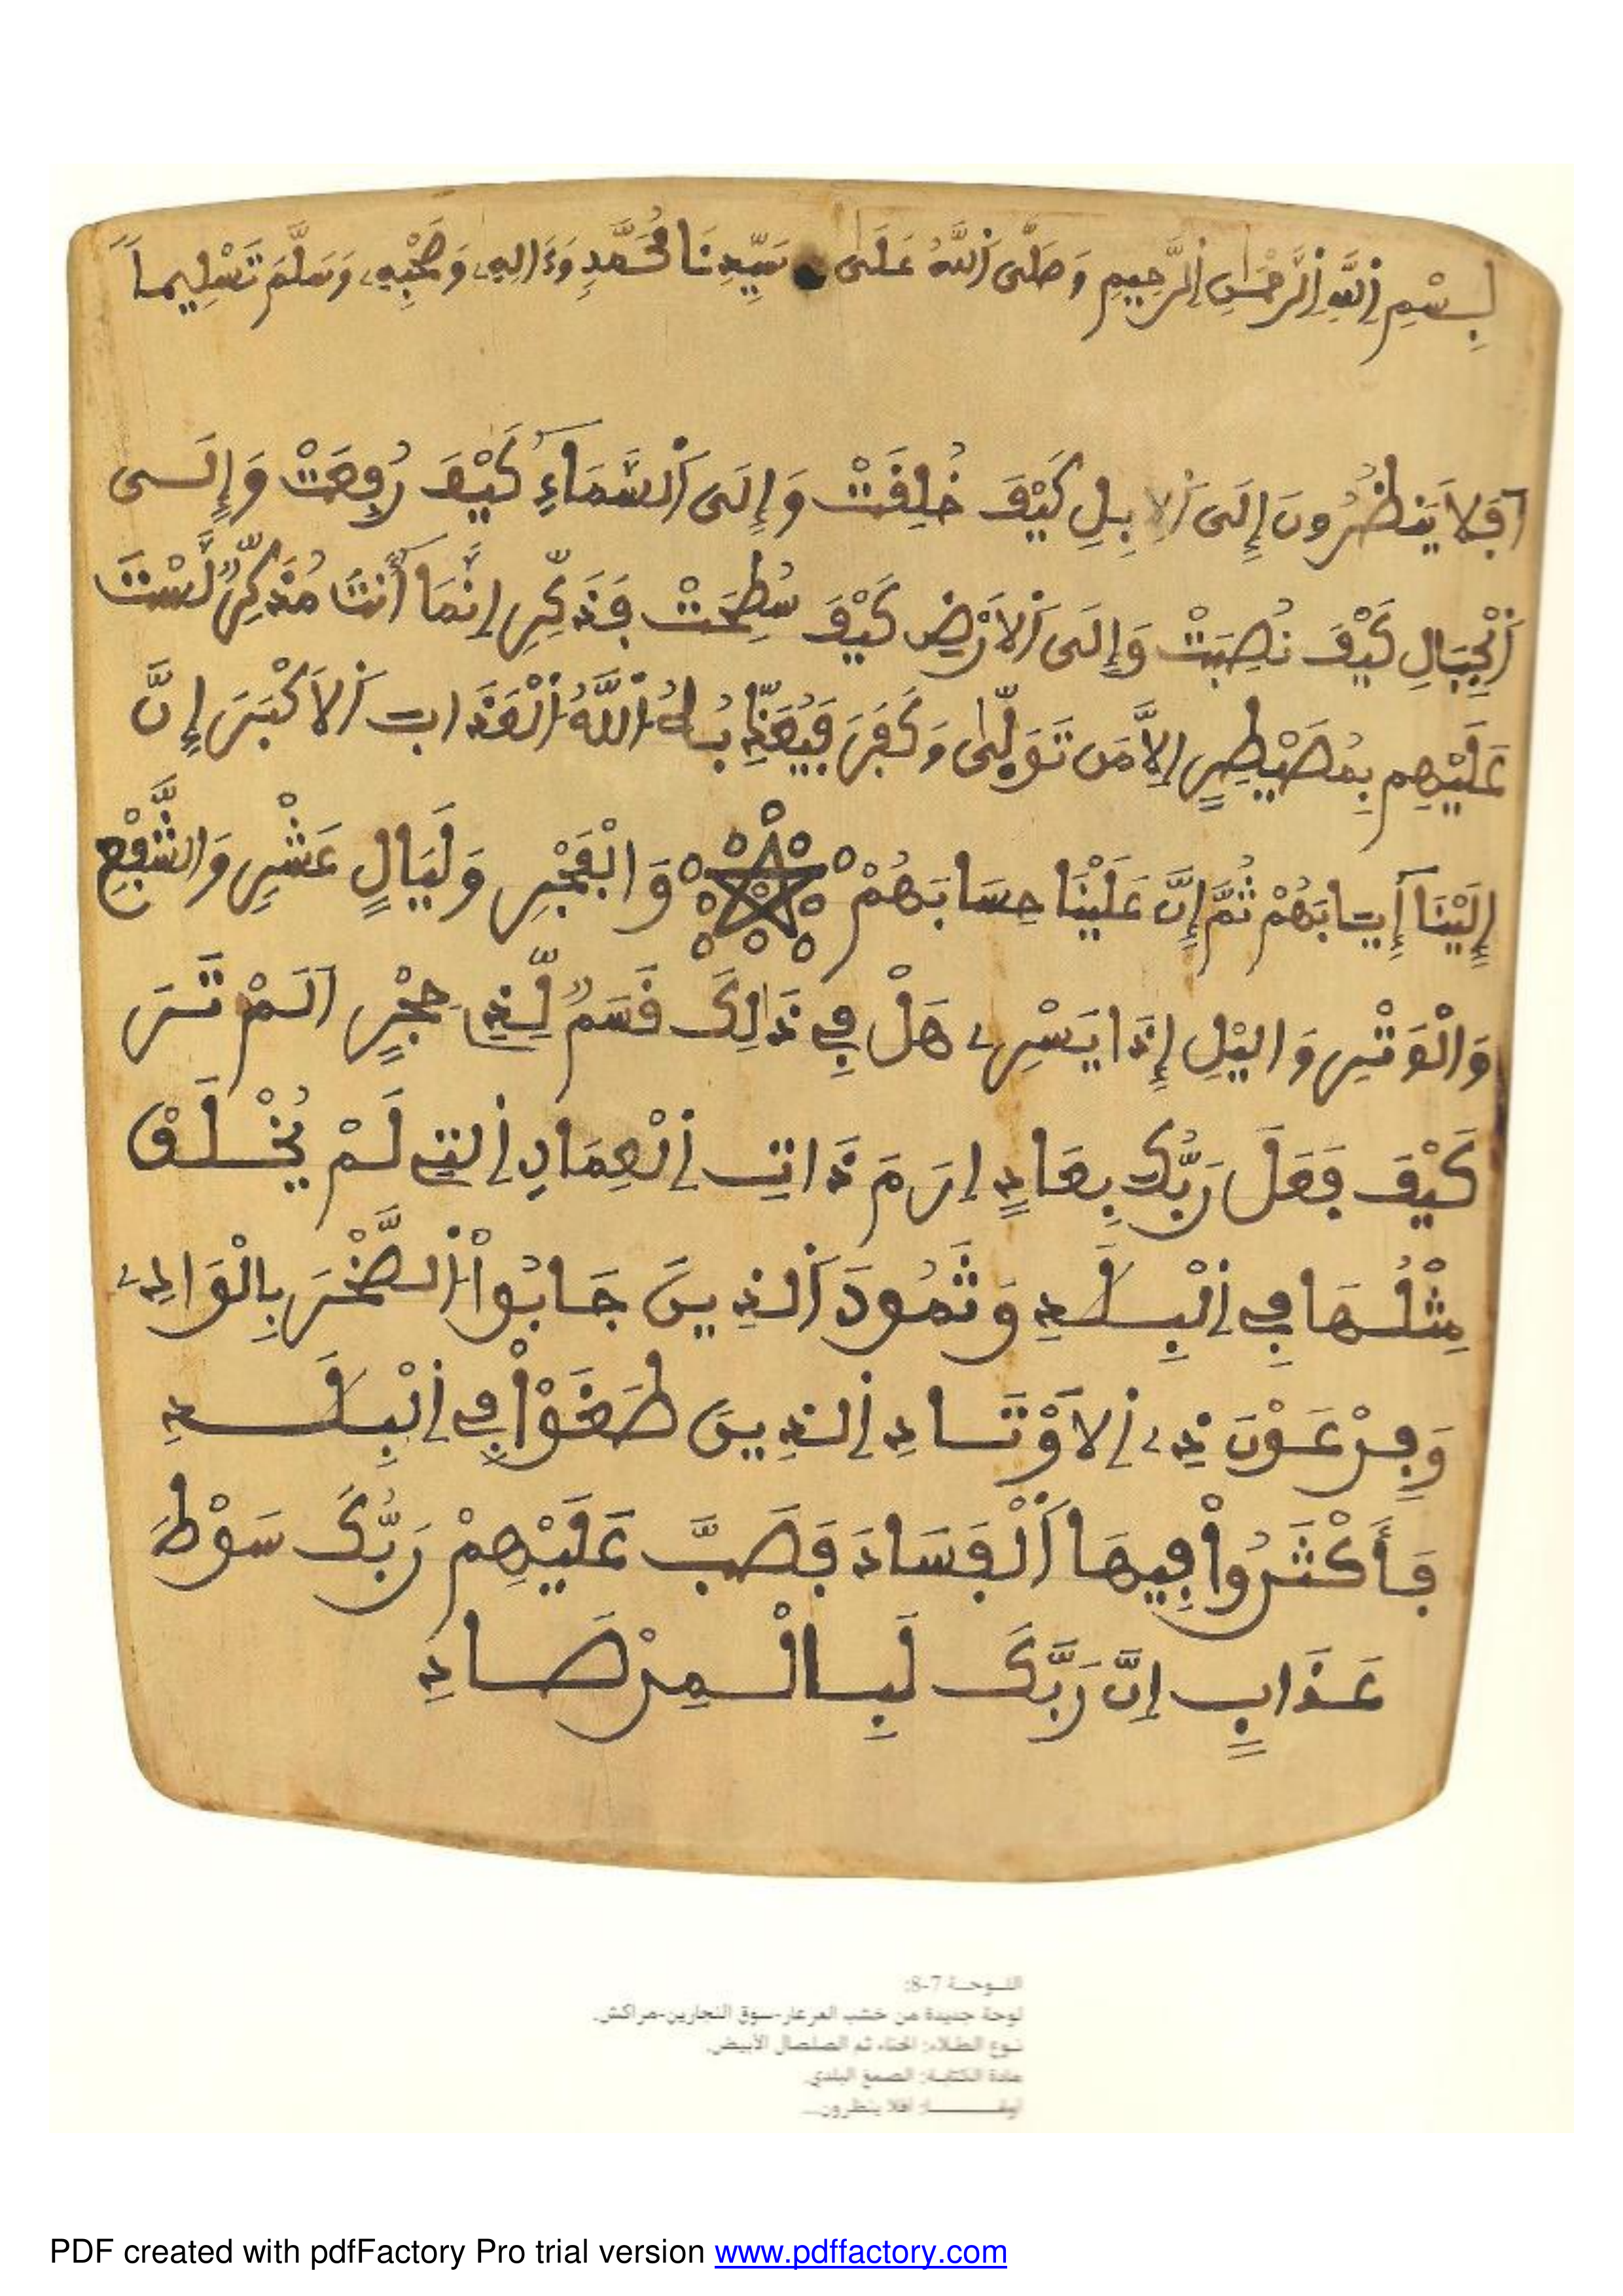 بِسْمِ اِللَّهِ اِلرَّحْمَٰنِ اِلرَّحِيمِ وَصَلَّى اَللَّهُ عَلَىٰ سَيِّدِنَا مُحَمَّدٍ وَءَالِهِ وَصَحْبِهِ وَسَلَّمَ تَسْلِيماً
اَفَلَا يَنظُرُونَ إِلَى اَلِابِلِ كَيْفَ خُلِقَتْ وَإِلَى اَلسَّمَاءِ كَيْفَ رُفِعَتْ وَإِلَى
اَلْجِبَالِ كَيْفَ نُصِبَتْ وَإِلَى اَلَارْضِ كَيْفَ سُطِحَتْ فَذَكِّرِ اِنَّمَا أَنتَ مُذَكِّرٌ لَّسْتَ
عَلَيْهِم بِمُصَيْطِرٍ اِلَّا مَن تَوَلَّىٰ وَكَفَرَ فَيُعَذِّبُهُ اُللَّهُ اُلْعَذَابَ اَلَاكْبَرَ إِنَّ
إِلَيْنَا إِيَابَهُمْ ثُمَّ إِنَّ عَلَيْنَا حِسَابَهُمْ وَالْفَجْرِ وَلَيَالٍ عَشْرٍ وَالشَّفْعِ
وَالْوَتْرِ وَاليْلِ إِذَا يَسْرِ هَلْ فِي ذَٰلِكَ قَسَمٌ لِّذِي حِجْرٍ اَلَمْ تَرَ
كَيْفَ فَعَلَ رَبُّكَ بِعَادٍ اِرَمَ ذَاتِ اِلْعِمَادِ اِلتِي لَمْ يُخْلَقْ
مِثْلُهَا فِي اِلْبِلَٰدِ وَثَمُودَ اَلذِينَ جَابُواْ اُلصَّخْرَ بِالْوَادِ
وَفِرْعَوْنَ ذِي اِلَاوْتَادِ اِلذِينَ طَغَوْاْ فِي اِلْبِلَٰدِ
فَأَكْثَرُواْ فِيهَا اَلْفَسَادَ فَصَبَّ عَلَيْهِمْ رَبُّكَ سَوْطَ
عَذَابٍ اِنَّ رَبَّكَ لَبِالْمِرْصَادِ
اللوحة 7-8:
لوحة جديدة من خشب العرعار-سوق النجارين-مراكش.
نوع الطلاء: الحناء ثم الصلصال الأبيض.
مادة الكتابة: الصمغ البلدي.
أفلا ينظرون...
PDF created with pdfFactory Pro trial version www.pdffactory.com